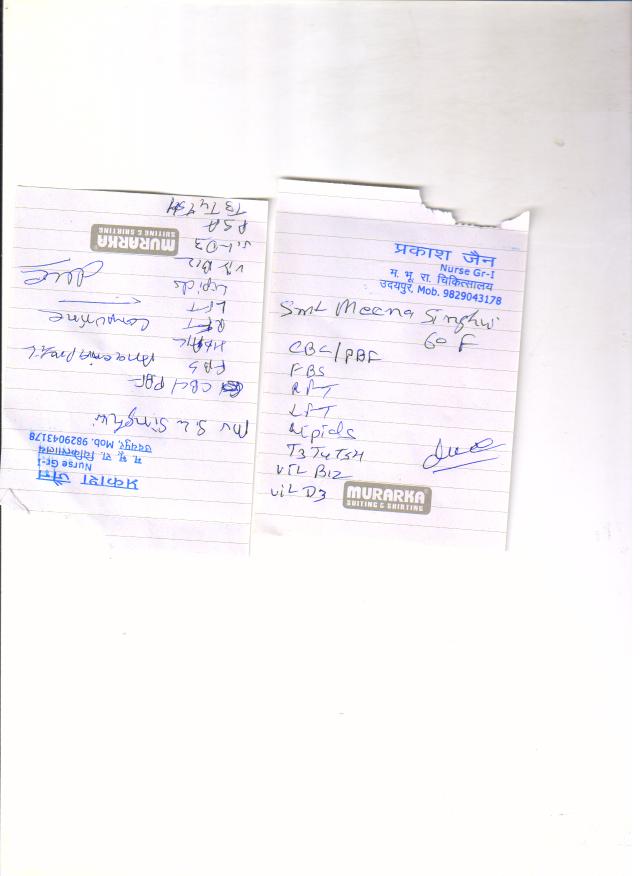 प्रकाश जैन
Nurse Gr-I
म. भू. रा. चिकित्सालय
उदयपुर, Mob. 9829043178
Mr S L Singhvi
CBC/PBF
FBS Anaemia Profile
HbA1c
RFT Comp urine
LFT
Lipids
Vit B12
Vit D3
PSA
T3 T4 TSH
MURARKA
SUITING & SHIRTING
प्रकाश जैन
Nurse Gr-I
म. भू. रा. चिकित्सालय
उदयपुर, Mob. 9829043178
Smt Meena Singhvi
60 F
CBC/PBF
FBS
RFT
LFT
Lipids
T3 T4 TSH
Vit B12
Vit D3
MURARKA
SUITING & SHIRTING